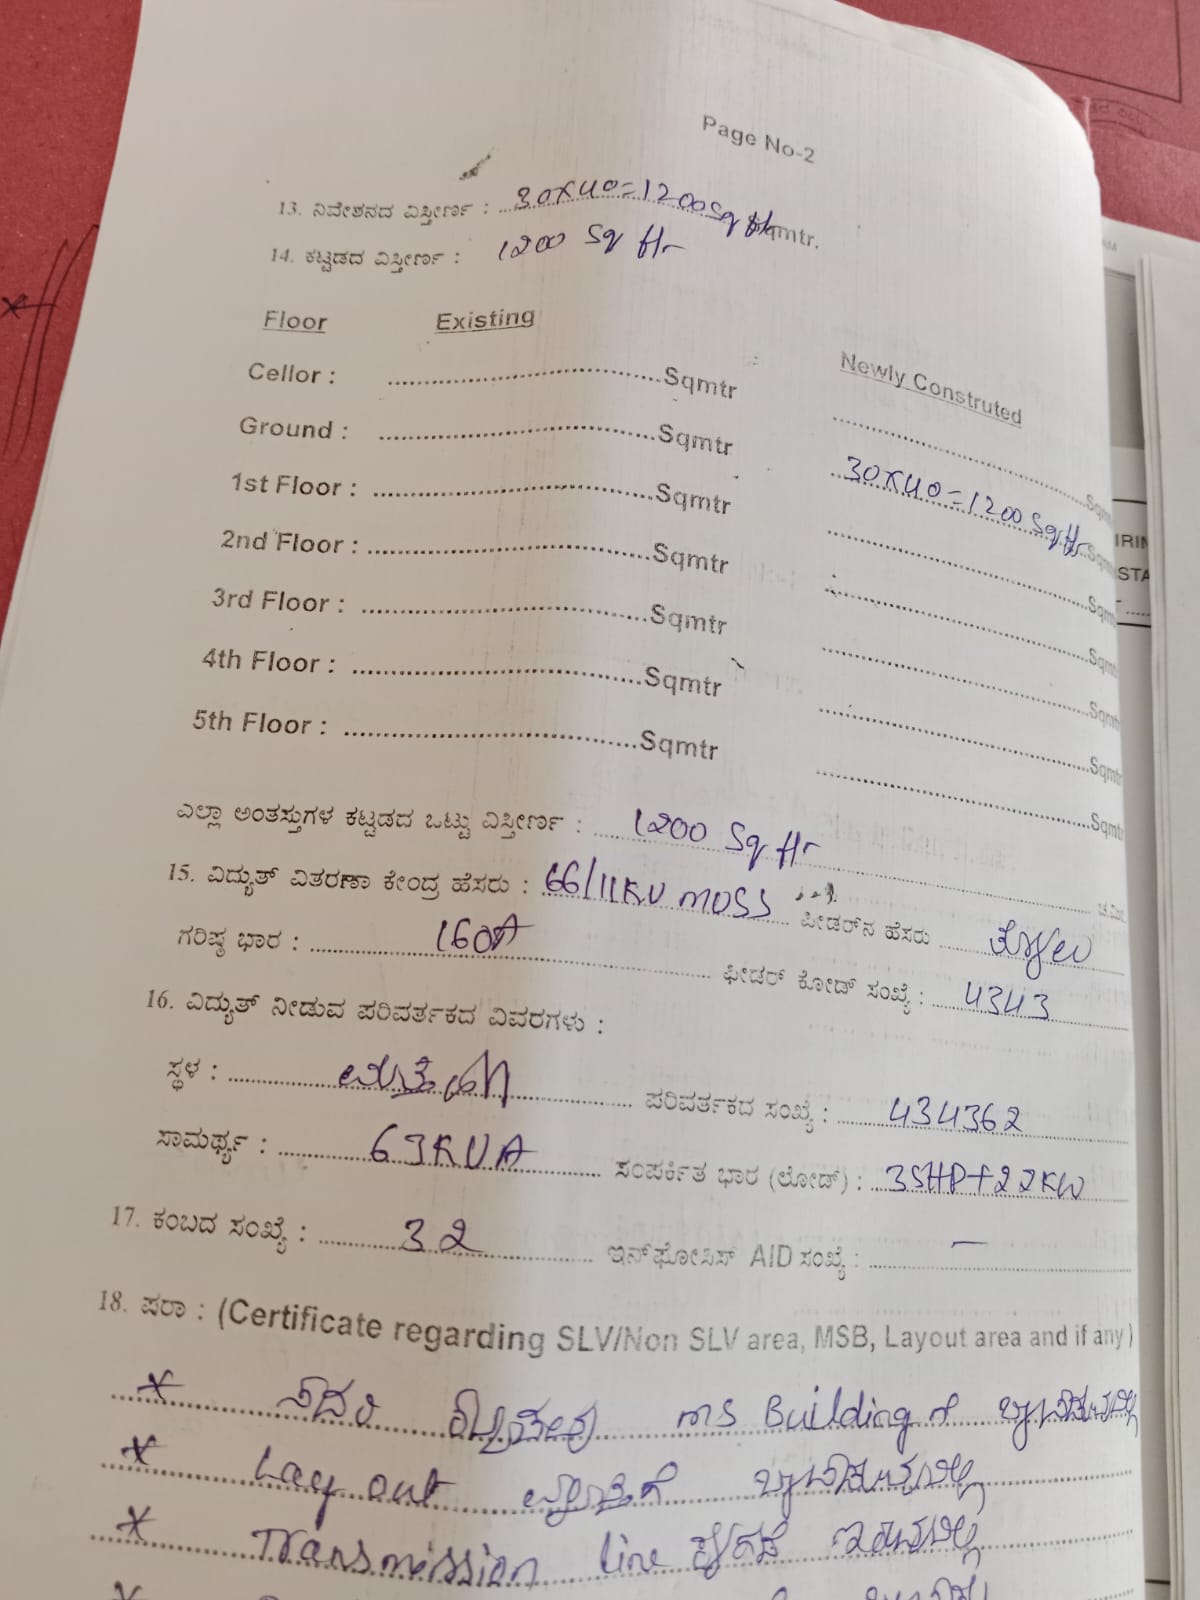 Page No-2
13. ನಿವೇಶನದ ವಿಸ್ತೀರ್ಣ : 30X40=1200Sq ft Sqmtr.
14. ಕಟ್ಟಡದ ವಿಸ್ತೀರ್ಣ : 1200 Sq ft
Floor Existing Newly Construted
Cellor : Sqmtr
Ground : Sqmtr 30X40=1200 Sq ft
1st Floor : Sqmtr
2nd Floor : Sqmtr
3rd Floor : Sqmtr
4th Floor : Sqmtr
5th Floor : Sqmtr
ಎಲ್ಲಾ ಅಂತಸ್ತುಗಳ ಕಟ್ಟಡದ ಒಟ್ಟು ವಿಸ್ತೀರ್ಣ : 1200 Sq ft
15. ವಿದ್ಯುತ್ ವಿತರಣಾ ಕೇಂದ್ರ ಹೆಸರು : 66/11KV MUSS ಫೀಡರ್‌ನ ಹೆಸರು
ಗರಿಷ್ಠ ಭಾರ : 160A ಫೀಡರ್ ಕೋಡ್ ಸಂಖ್ಯೆ : 4343
16. ವಿದ್ಯುತ್ ನೀಡುವ ಪರಿವರ್ತಕದ ವಿವರಗಳು :
ಸ್ಥಳ : ಪರಿವರ್ತಕದ ಸಂಖ್ಯೆ : 434362
ಸಾಮರ್ಥ್ಯ : 63KVA ಸಂಪರ್ಕಿತ ಭಾರ (ಲೋಡ್) : 35HP+22KW
17. ಕಂಬದ ಸಂಖ್ಯೆ : 32 ಇನ್‌ಫೋಸಿಸ್ AID ಸಂಖ್ಯೆ : —
18. ಪರಾ : (Certificate regarding SLV/Non SLV area, MSB, Layout area and if any)
* ಸದರಿ ms Building ಗೆ
* Lay out
* Transmission line ಇರುವುದಿಲ್ಲ